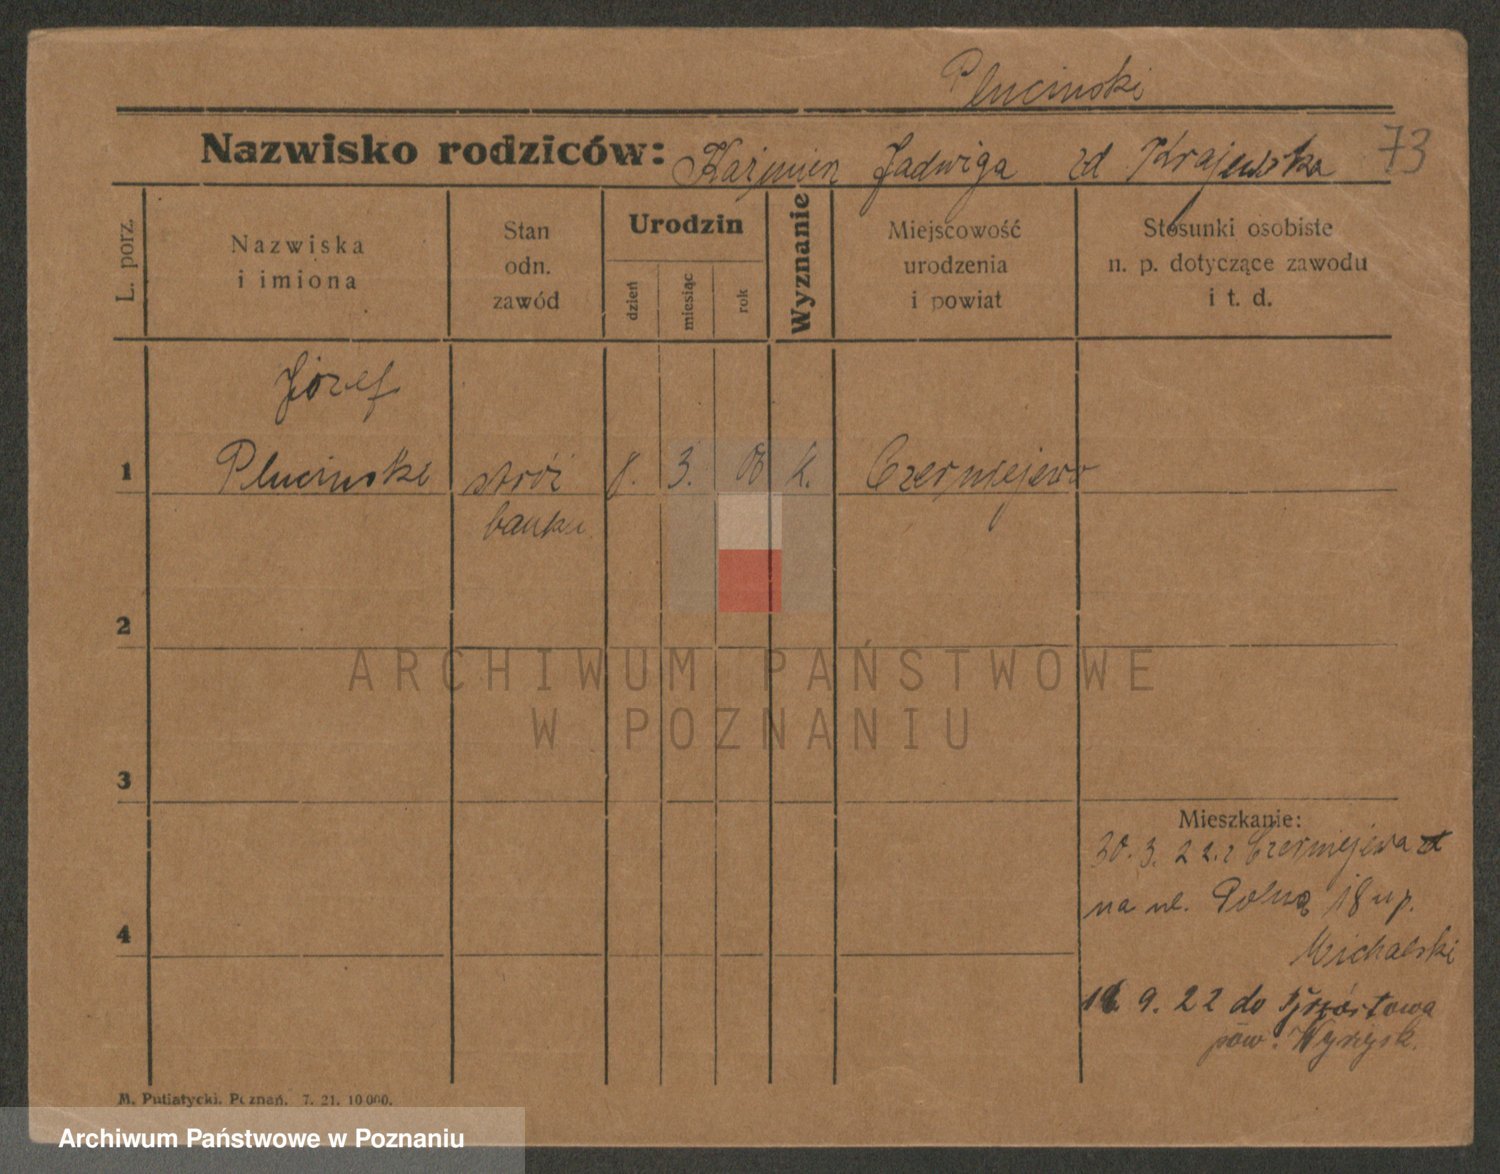 Plucinski
Nazwisko rodziców: Kaźmierz Jadwiga zd Krajewska 73
L. porz.
Nazwiska
i imiona
Stan
odn.
zawód
Urodzin
dzień
miesiąc
rok
Wyznanie
Miejscowość
urodzenia
i powiat
Stosunki osobiste
n. p. dotyczące zawodu
i t. d.
Józef
1 Plucinski stróż 8. 3. 06 k. Czerniejewo
banku
2
3
4
Mieszkanie:
30. 3. 22 z Czerniejewa
na ul. Polną 18 u p.
Michalski
9. 22 do
pow. Wyrzysk.
M. Putiatycki, Poznań. 7. 21. 10 000.
ARCHIWUM PAŃSTWOWE
W POZNANIU
Archiwum Państwowe w Poznaniu